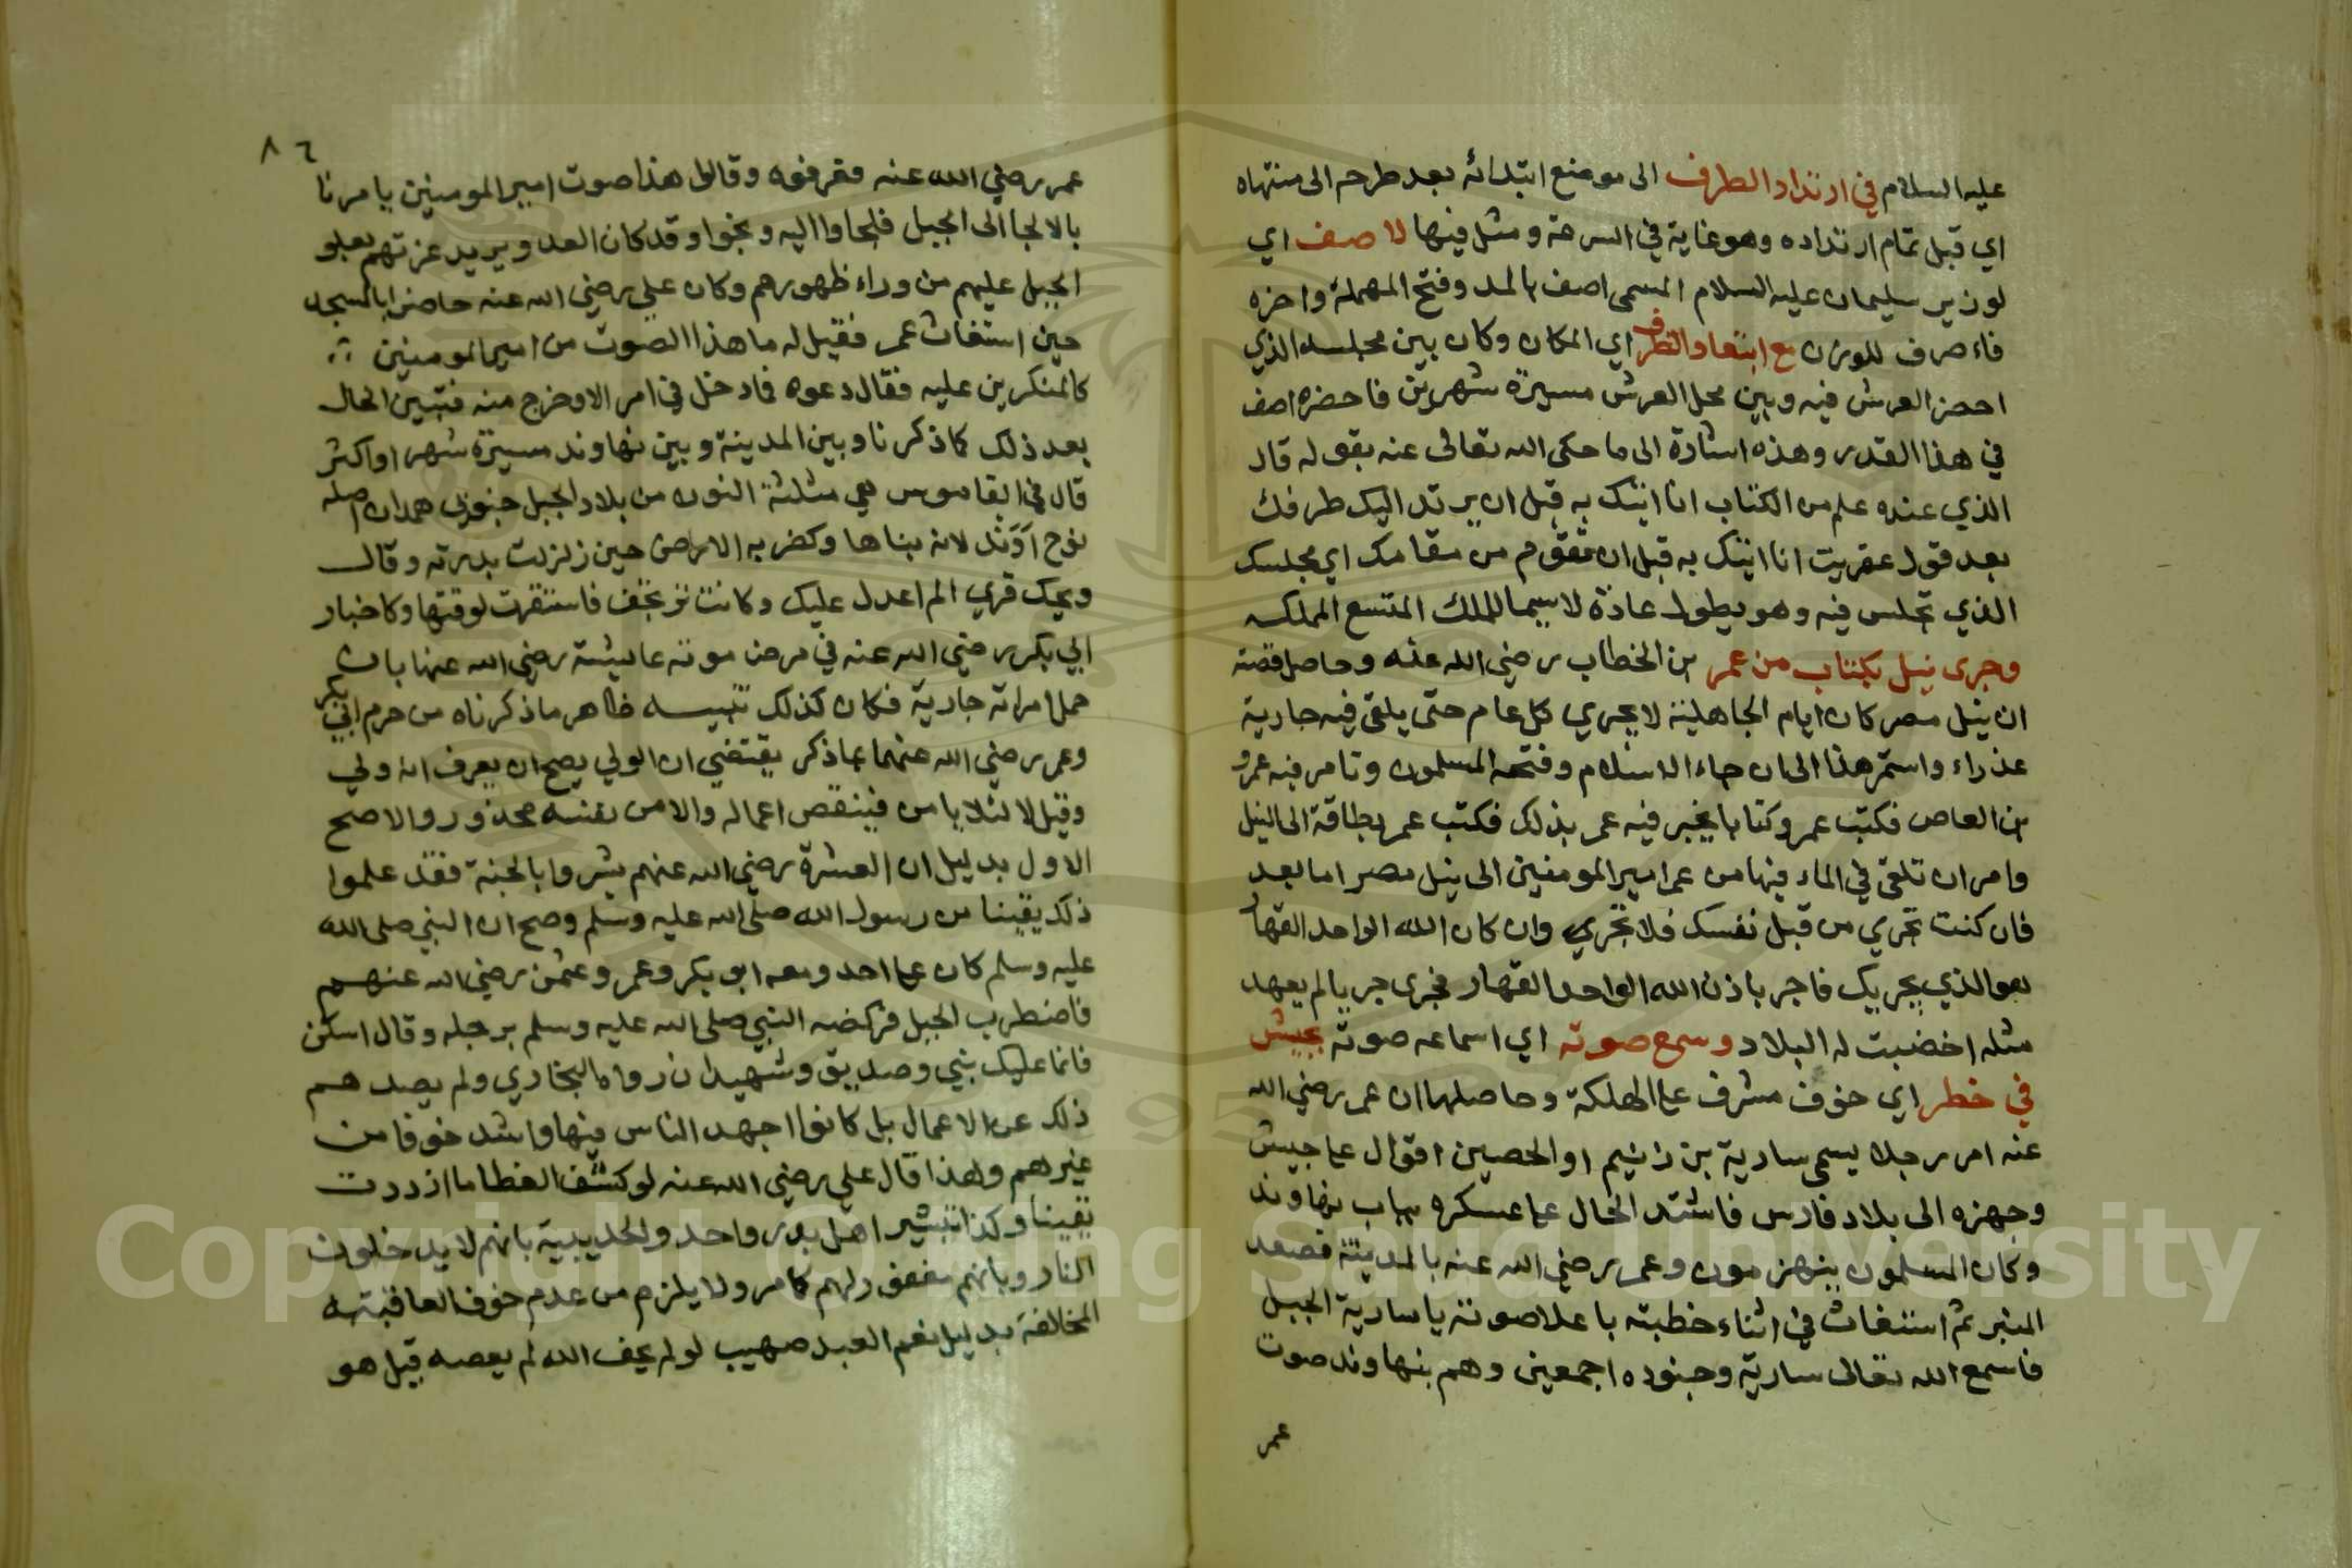 عليه السلام في ارتداد الطرف الى موضع ابتدائه بعد طرحه الى منتهاه
اي قبل تمام ارتداده وهو غاية في السرعة ومثل فيها لاصف اي
لوزير سليمان عليه السلام المسمى اصف بالمد وفتح المهملة واخره
فاء صرف للوزن مع ابتعاد الطرف اي المكان وكان بين مجلسه الذي
احضر العرش فيه وبين محل العرش مسيرة شهرين فاحضره اصف
في هذا القدر وهذه اشارة الى ما حكى الله تعالى عنه بقوله قال
الذي عنده علم من الكتاب انا اتيك به قبل ان يرتد اليك طرفك
بعد قول عفريت انا اتيك به قبل ان تقوم من مقامك اي مجلسك
الذي تجلس فيه وهو يطول عادة لا سيما للملك المتسع المملكه
وجرى نيل بكتاب من عمر بن الخطاب رضي الله عنه وحاصل قصته
ان نيل مصر كان ايام الجاهلية لا يجري كل عام حتى يلقى فيه جارية
عذراء واستمر هذا الى ان جاء الاسلام وفتحه المسلمون وتامر فيه عمرو
بن العاص فكتب عمرو كتابا يخبر فيه عمر بذلك فكتب عمر بطاقة الى النيل
وامر ان تلقى في الماء فيها من عمر امير المومنين الى نيل مصر اما بعد
فان كنت تجري من قبل نفسك فلا تجري وان كان الله الواحد القهار
هو الذي يجريك فاجر باذن الله الواحد القهار فجرى جريا لم يعهد
مثله اخضبت له البلاد وسمع صوته اي اسماعه صوته بجيش
في خطر اي خوف مشرف على الهلكة وحاصلها ان عمر رضي الله
عنه امر رجلا يسمى سارية بن زنيم او الحصين اقوال على جيش
وجهزه الى بلاد فارس فاشتد الحال على عسكره بباب نهاوند
وكان المسلمون ينهزمون وعمر رضي الله عنه بالمدينة فصعد
المنبر ثم استغاث في اثناء خطبته باعلا صوته يا سارية الجبل
فاسمع الله تعالى سارية وجنوده اجمعين وهم بنهاوند صوت
عمر
٨٦
عمر رضي الله عنه فعرفوه وقالوا هذا صوت امير المومنين يامرنا
بالالجا الى الجبل فلجاوا اليه ونجوا وقد كان العدو يريد غرتهم بعلو
الجبل عليهم من وراء ظهورهم وكان علي رضي الله عنه حاضرا بالمسجد
حين استغاث عمر فقيل له ما هذا الصوت من امير المومنين
كالمنكرين عليه فقال دعوه فما دخل في امر الا وخرج منه فتبين الحال
بعد ذلك كما ذكرنا وبين المدينة وبين نهاوند مسيرة شهر او اكثر
قال في القاموس هي مثلثة النون من بلاد الجبل جنوبي همدان اصله
نوح اوند لانه بناها وكضربه الارض حين زلزلت بدرته وقال
ويحك قري الم اعدل عليك وكانت ترتجف فاستقرت لوقتها وكاخبار
ابي بكر رضي الله عنه في مرض موته عايشة رضي الله عنها بان
حمل امراته جارية فكان كذلك تنبيه ظاهر ما ذكرناه من جزم ابي بكر
وعمر رضي الله عنهما بما ذكر يقتضي ان الولي يصح ان يعرف انه ولي
وقيل لا لئلا يامن فينقص اعماله والامن نفسه محذور والاصح
الاول بدليل ان العشرة رضي الله عنهم بشروا بالجنة فقد علموا
ذلك يقينا من رسول الله صلى الله عليه وسلم وصح ان النبي صلى الله
عليه وسلم كان على احد ومعه ابو بكر وعمر وعثمن رضي الله عنهم
فاضطرب الجبل فركضه النبي صلى الله عليه وسلم برجله وقال اسكن
فانما عليك نبي وصديق وشهيدان رواه البخاري ولم يصدهم
ذلك عن الاعمال بل كانوا اجهد الناس فيها واشد خوفا من
غيرهم ولهذا قال علي رضي الله عنه لو كشف الغطا ما ازددت
يقينا وكذا تبشير اهل بدر واحد والحديبية بانهم لا يدخلون
النار وبانهم مغفور لهم كما مر ولا يلزم من عدم خوف العاقبة
المخالفة بدليل نعم العبد صهيب لو لم يخف الله لم يعصه قيل هو
Copyright © King Saud University
1957